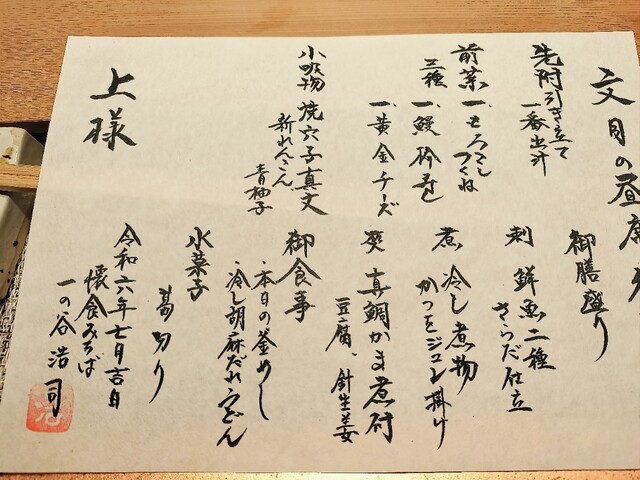 文月の昼席
先附 引き立て
一番出汁
前菜 一、もろこし
つくね
三種 一、鰻砧巻
一、黄金チーズ
小吸物 焼穴子真丈
新れんこん
青柚子
御膳盛り
刺 鮮魚二種
さらだ仕立
煮 冷し煮物
かつをジュレ掛け
真鯛かま煮付
豆腐、針生姜
御食事
・本日の釜めし
・冷し胡麻だれうどん
水菓子
葛切り
令和六年七月吉日
懐食みちば
一の谷浩司
上様